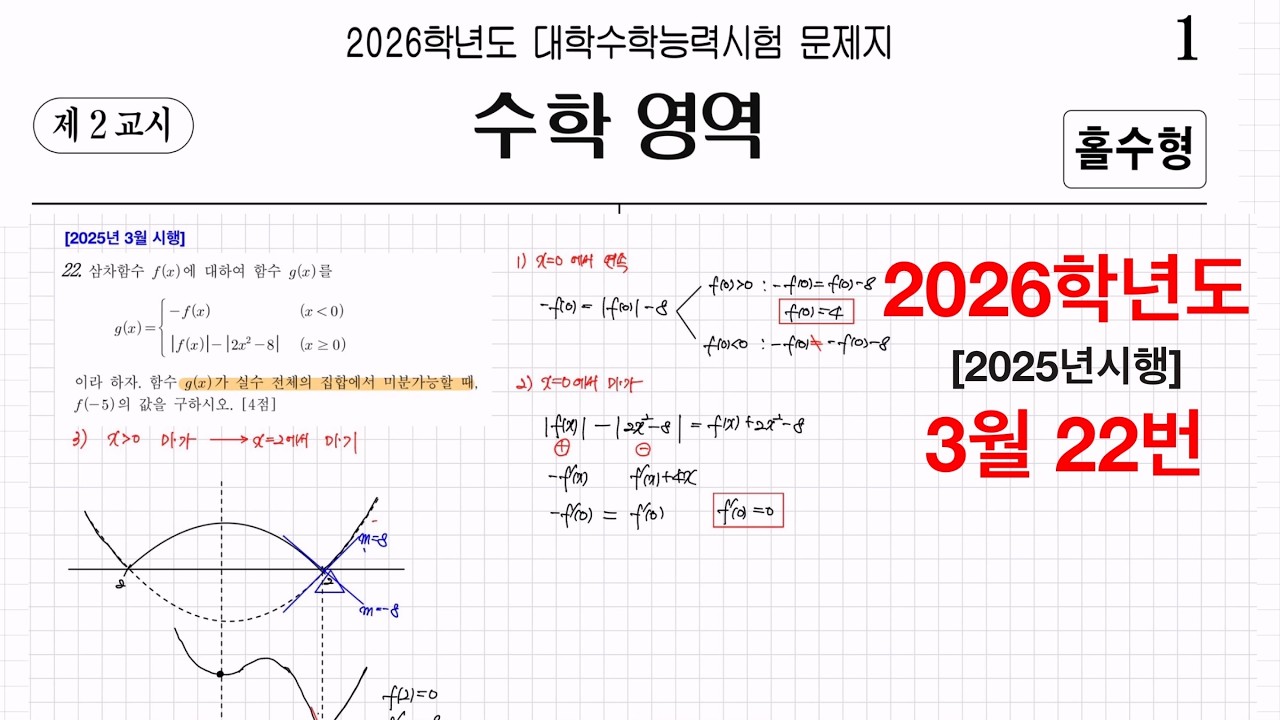 2026학년도 대학수학능력시험 문제지
1
제 2 교시
수학 영역
홀수형
[2025년 3월 시행]
22. 삼차함수 f(x)에 대하여 함수 g(x)를
g(x)={ −f(x) (x<0)
|f(x)|−|2x²−8| (x≥0)
이라 하자. 함수 g(x)가 실수 전체의 집합에서 미분가능할 때,
f(−5)의 값을 구하시오. [4점]
3) x>0 미가 → x=2에서 미가
m=8
2
m=-8
f(2)=0
1) x=0 에서 연속
-f(0) = |f(0)|-8
f(0)>0 : -f(0)=f(0)-8
f(0)=4
f(0)<0 : -f(0)≠-f(0)-8
2) x=0에서 미가
|f(x)| - |2x²-8| = f(x)+2x²-8
⊕ ⊖
-f'(x) f'(x)+4x
-f'(0) = f'(0)
f'(0)=0
2026학년도
[2025년시행]
3월 22번